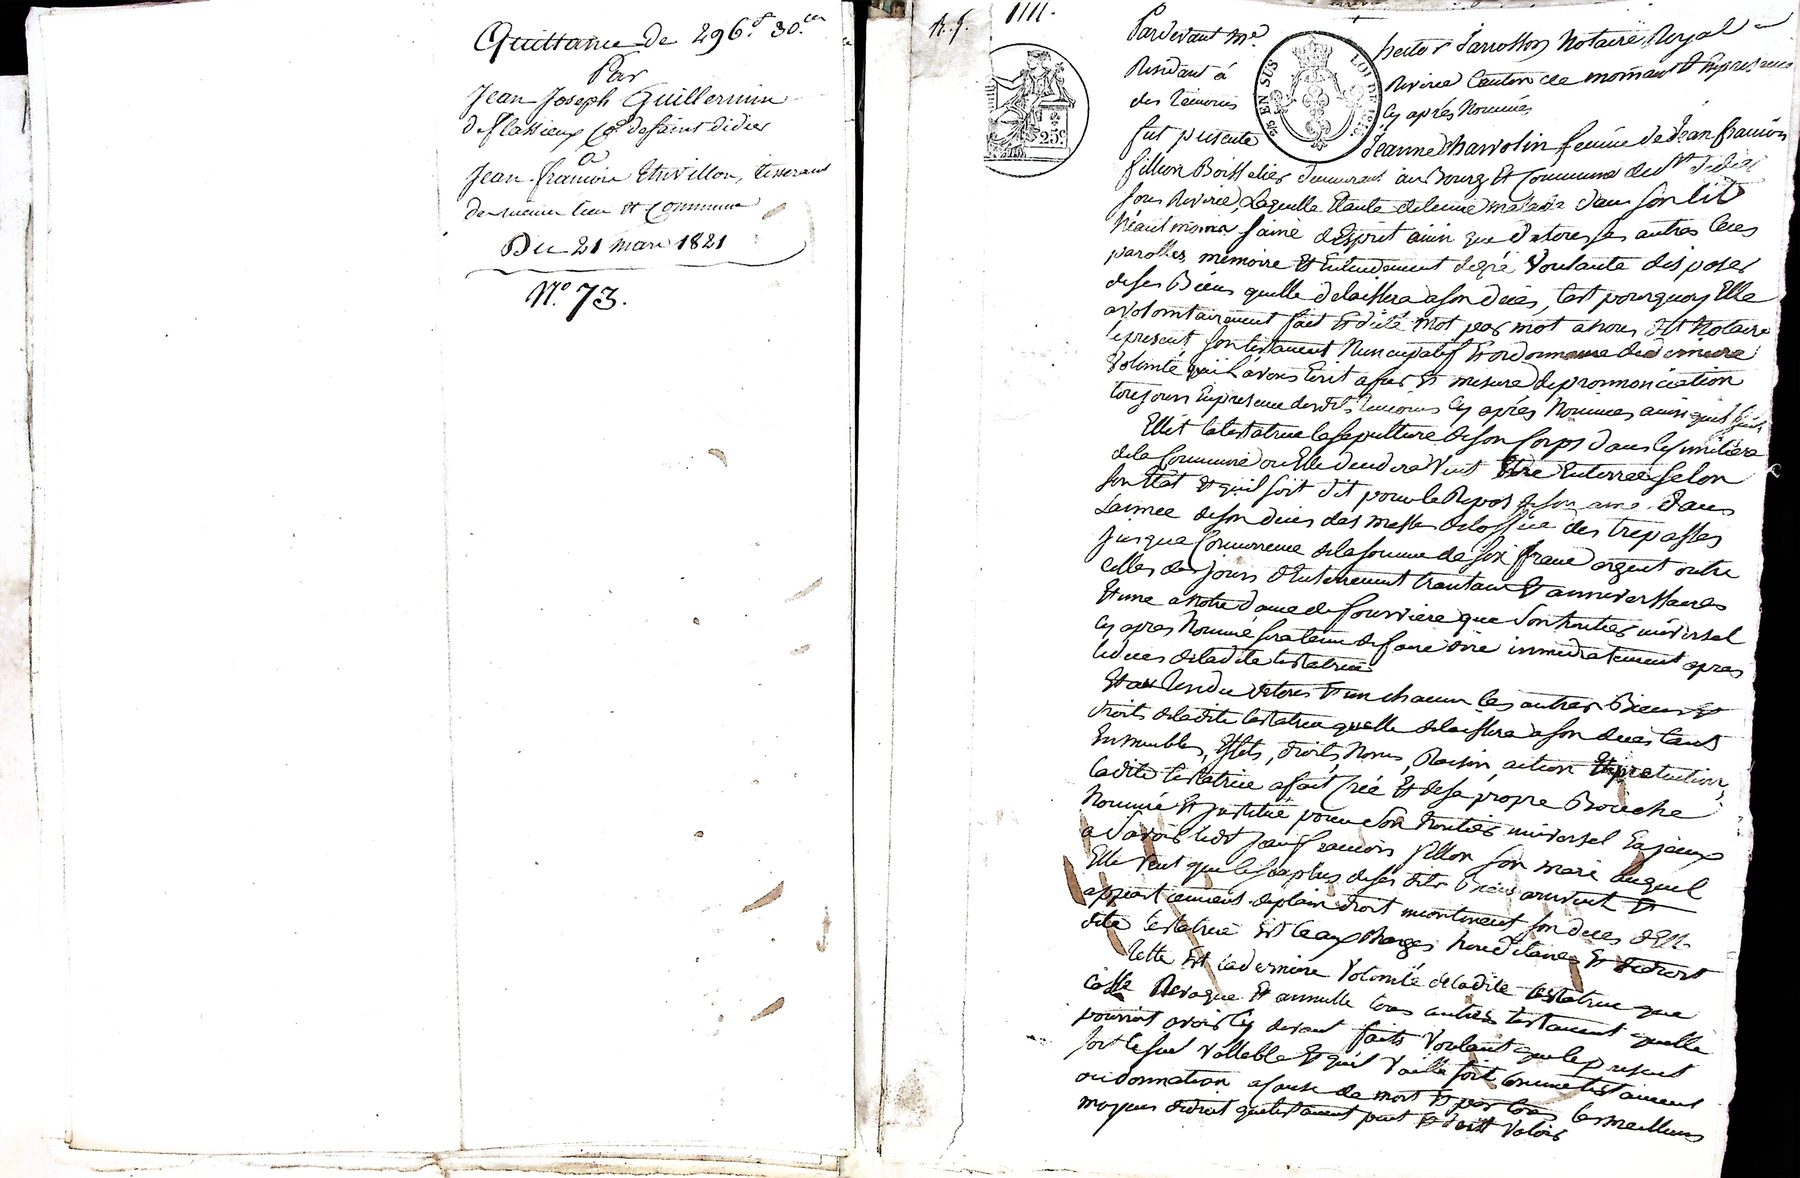 Quittance de 296.f 30.cen
Par
Jean Joseph Guillermin
de flassieux Co. de saint didier
a
Jean françois Thivillon, tisserand
de meme lieu et Commune
Du 21 mars 1821
N.o 73.
A. J.
1111.
25c
25 EN SUS
LOI DE 1816
Pardevant Me. hector Jarrosson Notaire Royal
Résidant à Riverie Canton de mornant et En presence
des temoins Cy après Nommés
fut presente Jeanne Charvolin femme de Jean françois
fillion Boisselier demeurant au Bourg et Commune de St Didier
sous Riverie, Laquelle Etante detenue malade dans son lit
Néantmoins saine d'Esprit ainsi que de tous ses autres sens
parolles, mémoire et Entendement degré voulante disposer
de ses Biens quelle delaissera a son decès, C'est pourquoy Elle
a volontairement fait et dicté mot par mot a nous dit Notaire
le present son testament Nuncupatif et ordonnance de derniere
Volonté qui l'avons Ecrit a fur et mesure de prononciation
toujours En presence desdits temoins Cy après Nommés ainsi qu'il suit
Elit la testatrice la sepulture de son Corps dans le simitière
de la Commune ou Elle decedera Veut Etre Enterrée selon
son Etat et qu'il soit dit pour le Repos de son ame dans
L'année de son decès des messes de l'office des trepassés
jusque Concurrence de la somme de six francs argent outre
celles des jours d'Enterrement trantain et anniversaires
Et une a Notre dame de fourviere que son heritier universel
Cy après Nommé sera tenu de faire dire immediatement après
le decès de ladite testatrice
Et au Rendu de tous et un chacun les autres Biens et
droits de ladite testatrice quelle delaissera a son decès tant
En meubles, Effets, droits, Noms, Raison, action Et pretention,
ladite testatrice a fait Créé et de sa propre Bouche
Nommé et Institué pour son heritier universel
a savoir ledit Jean francois fillion son mari auquel
Elle Veut que le surplus de ses dits Biens arrivent et
appartiennent de plain droit incontinent son decès d'Elle
dite testatrice Et le aux charges hereditaires Et de droit
Cette Est la derniere Volonté de ladite testatrice que
Casse Revoque et annulle tous autres testament quelle
pourroit avoir Cy devant faits Voulant que le present
soit le seul Vallable et qu'il Vaille soit Comme testament
ou donnation a cause de mort et par tous les meilleurs
moyens de droit que testament peut et doit Valoir